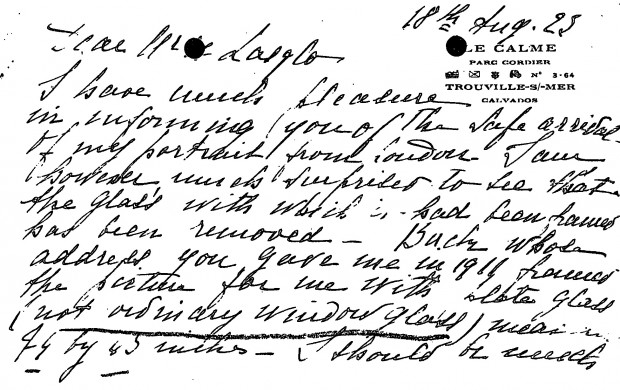 18th Aug. 23
LE CALME
PARC CORDIER
N° 3-64
TROUVILLE-S/-MER
CALVADOS
Dear
I have much pleasure
in informing you of the safe arrival
of my portrait from London. I am
however much surprised to see that
the glass with which it had been framed
has been removed — Buck whose
address you gave me in 1911 framed
the picture for me with plate glass
(not ordinary window glass)
by 45 inches — I should be much